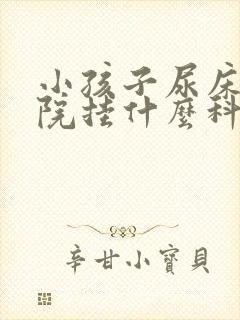 小孩子尿床
院挂什麼科
辛甘小寶貝